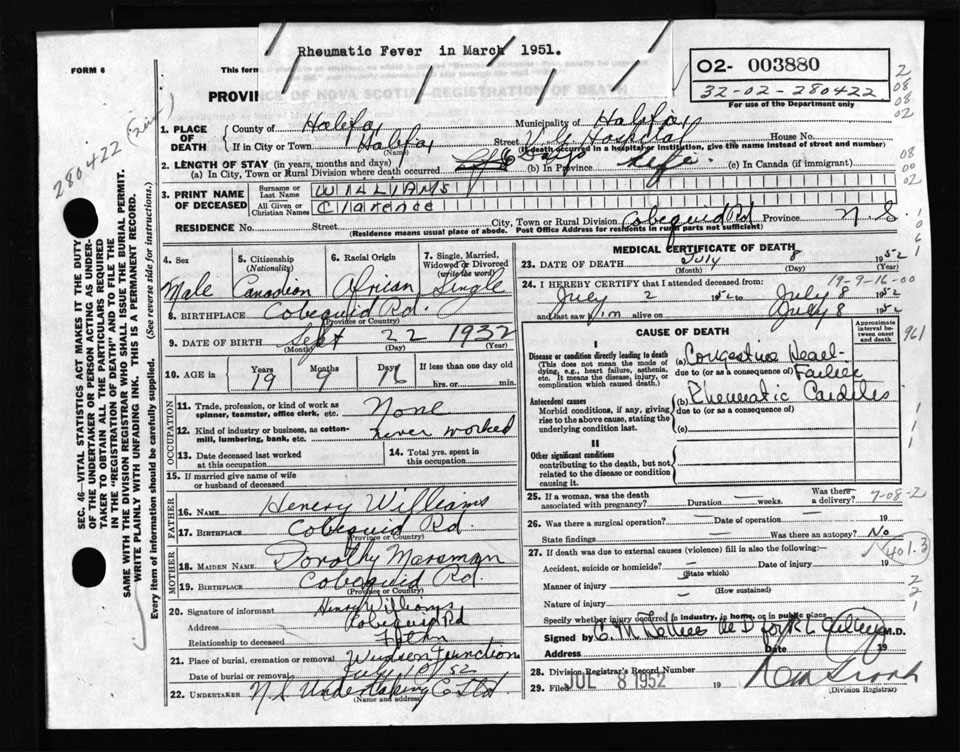 Rheumatic Fever in March 1951.
FORM 6
This form
O2- 003880
32-02-280422
For use of the Department only
PROVINCE OF NOVA SCOTIA—REGISTRATION OF DEATH
2
08
08
02
280422
1. PLACE OF DEATH
County of Halifax Municipality of Halifax
If in City or Town Halifax (Name) Street V.G. Hospital House No.
(If death occurred in a hospital or institution, give the name instead of street and number)
2. LENGTH OF STAY (in years, months and days)
(a) In City, Town or Rural Division where death occurred 6 Days (b) In Province Life. (c) In Canada (if immigrant)
08
00
02
3. PRINT NAME OF DECEASED
Surname or Last Name WILLIAMS
All Given or Christian Names Clarence
RESIDENCE No. Street City, Town or Rural Division Cobequid Rd Province N.S.
(Residence means usual place of abode. Post Office Address for residents in rural parts not sufficient)
SEC. 46—VITAL STATISTICS ACT MAKES IT THE DUTY
OF THE UNDERTAKER OR PERSON ACTING AS UNDER-
TAKER TO OBTAIN ALL THE PARTICULARS REQUIRED
IN THE "REGISTRATION OF DEATH" AND TO FILE THE
SAME WITH THE DIVISION REGISTRAR WHO SHALL ISSUE THE BURIAL PERMIT.
WRITE PLAINLY WITH UNFADING INK. THIS IS A PERMANENT RECORD.
Every item of information should be carefully supplied. (See reverse side for instructions.)
4. Sex Male
5. Citizenship (Nationality) Canadian
6. Racial Origin African
7. Single, Married, Widowed or Divorced (write the word) Single
8. BIRTHPLACE Cobequid Rd.
(Province or Country)
9. DATE OF BIRTH Sept 22 1932
(Month) (Day) (Year)
10. AGE in Years 19 Months 9 Days 16 If less than one day old
hrs. or min.
OCCUPATION
11. Trade, profession, or kind of work as spinner, teamster, office clerk, etc. None
12. Kind of industry or business, as cotton-mill, lumbering, bank, etc. never worked
13. Date deceased last worked at this occupation
14. Total yrs. spent in this occupation
15. If married give name of wife or husband of deceased
FATHER
16. Name Henery Williams
17. Birthplace Cobequid Rd.
(Province or Country)
MOTHER
18. Maiden Name Dorothy Marsman
19. Birthplace Cobequid Rd.
(Province or Country)
20. Signature of informant Henry Williams
Address Cobequid Rd
Relationship to deceased Father
21. Place of burial, cremation or removal Windsor Junction
Date of burial or removal July 10/52
22. UNDERTAKER N.S. Undertaking Co Ltd.
(Name and address)
MEDICAL CERTIFICATE OF DEATH
23. DATE OF DEATH July 8 1952
(Month) (Day) (Year)
19-9-16-00
24. I HEREBY CERTIFY that I attended deceased from:
July 2 1952 to July 8 1952
and last saw him alive on July 8 1952
CAUSE OF DEATH
Approximate interval between onset and death
I
Disease or condition directly leading to death
(This does not mean the mode of dying, e.g., heart failure, asthenia, etc. It means the disease, injury, or complication which caused death.)
(a) Congestive Heart Failure
due to (or as a consequence of)
Antecedent causes
Morbid conditions, if any, giving rise to the above cause, stating the underlying condition last.
(b) Rheumatic Carditis
due to (or as a consequence of)
(c)
II
Other significant conditions
contributing to the death, but not related to the disease or condition causing it.
25. If a woman, was the death associated with pregnancy? Duration weeks. Was there a delivery? 7-08-2
26. Was there a surgical operation? Date of operation 19
State findings Was there an autopsy? No
27. If death was due to external causes (violence) fill in also the following:— 401.3
Accident, suicide or homicide? (State which) Date of injury 19
Manner of injury (How sustained)
Nature of injury
Specify whether injury occurred in industry, in home, or in public place
Signed by M.D.
Address Date 19
28. Division Registrar's Record Number
29. Filed JUL 8 1952 19
(Division Registrar)